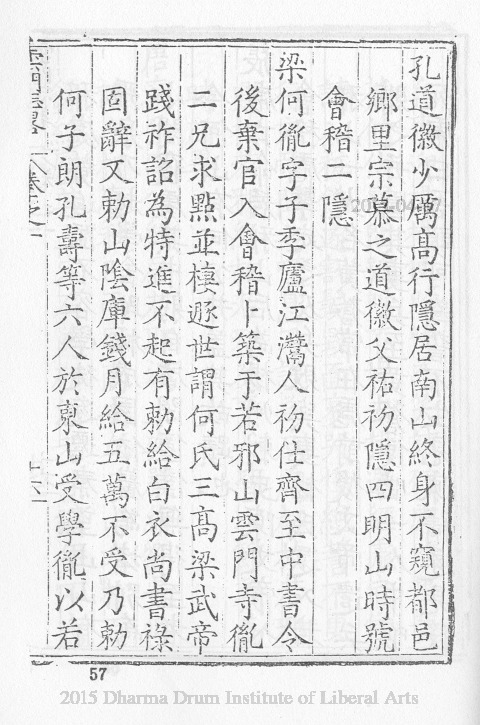 孔道徽少厲高行隱居南山終身不窺都邑
鄉里宗慕之道徽父祐初隱四明山時號
會稽二隱
梁何胤字子季廬江灊人初仕齊至中書令
後棄官入會稽卜築于若邪山雲門寺胤
二兄求點並棲遯世謂何氏三高梁武帝
踐祚詔為特進不起有勅給白衣尚書祿
固辭又勅山陰庫錢月給五萬不受乃勅
何子朗孔壽等六人於東山受學胤以若
57
2015 Dharma Drum Institute of Liberal Arts